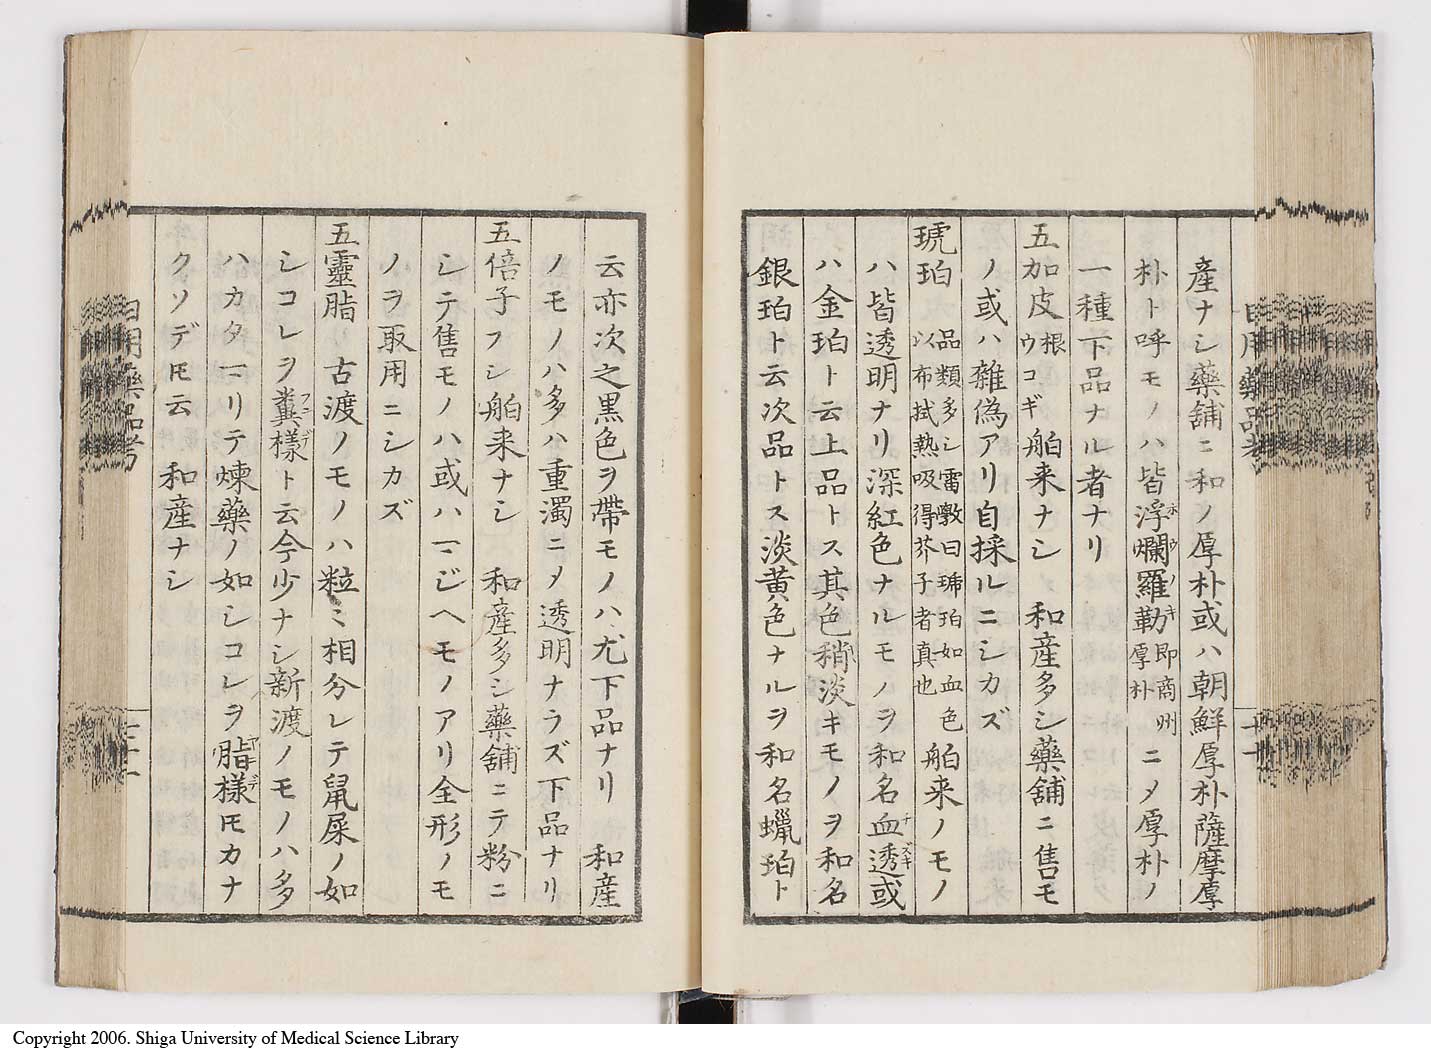 産ナシ藥舗ニ和ノ厚朴或ハ朝鮮厚朴薩摩厚
朴ト呼モノハ皆浮爛羅勒ホウノキ即商州厚朴ニメ厚朴ノ
一種下品ナル者ナリ
五加皮根ウコギ舶来ナシ 和産多シ藥舗ニ售モ
ノ或ハ雜偽アリ自採ルニシカズ
琥珀品類多シ雷斅曰琥珀如血色以布拭熱吸得芥子者真也 舶来ノモノ
ハ皆透明ナリ深紅色ナルモノヲ和名血透ナズキ或
ハ金珀ト云上品トス其色稍淡キモノヲ和名
銀珀ト云次品トス淡黄色ナルヲ和名蠟珀ト
日用藥品考
云亦次之黒色ヲ帶モノハ尤下品ナリ 和産
ノモノハ多ハ重濁ニメ透明ナラズ下品ナリ
五倍子フシ舶来ナシ 和産多シ藥舗ニテ粉ニ
シテ售モノハ或ハマジヘモノアリ全形ノモ
ノヲ取用ニシカズ
五靈脂 古渡ノモノハ粒〻相分レテ鼠屎ノ如
シコレヲ糞様フンデト云今少ナシ新渡ノモノハ多
ハカタマリテ煉藥ノ如シコレヲ脂様ヤニデ𪜈カナ
クソデ𪜈云 和産ナシ
日用藥品考
Copyright 2006. Shiga University of Medical Science Library